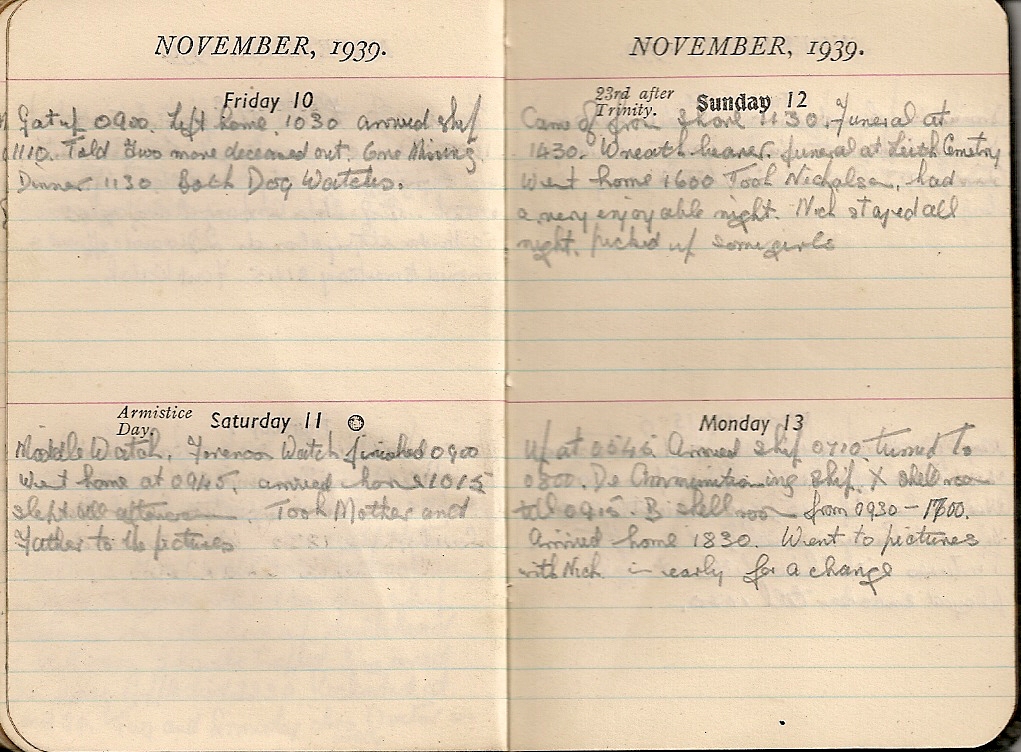 NOVEMBER, 1939.
Friday 10
Got up 0900. Left home 1030 arrived ship
1110. Told two more deceased out. One Missing
Dinner 1130 Both Dog Watches.
Armistice
Day.
Saturday 11
Middle Watch, Forenoon Watch finished 0900
Went home at 0945. arrived home 1015
slept all afternoon. Took Mother and
Father to the pictures
NOVEMBER, 1939.
23rd after
Trinity.
Sunday 12
Came off from shore 1130. Funeral at
1430. Wreath bearer. funeral at Leith Cemetry
Went home 1600 Took Nicholson, had
a very enjoyable night. Nick stayed all
night. picked up some girls
Monday 13
Up at 0545 Arrived ship 0710 turned to
0800. De Ammunitioning ship. X shell room
till 0915. B shell room from 0930 - 1700.
Arrived home 1830. Went to pictures
with Nick in early for a change